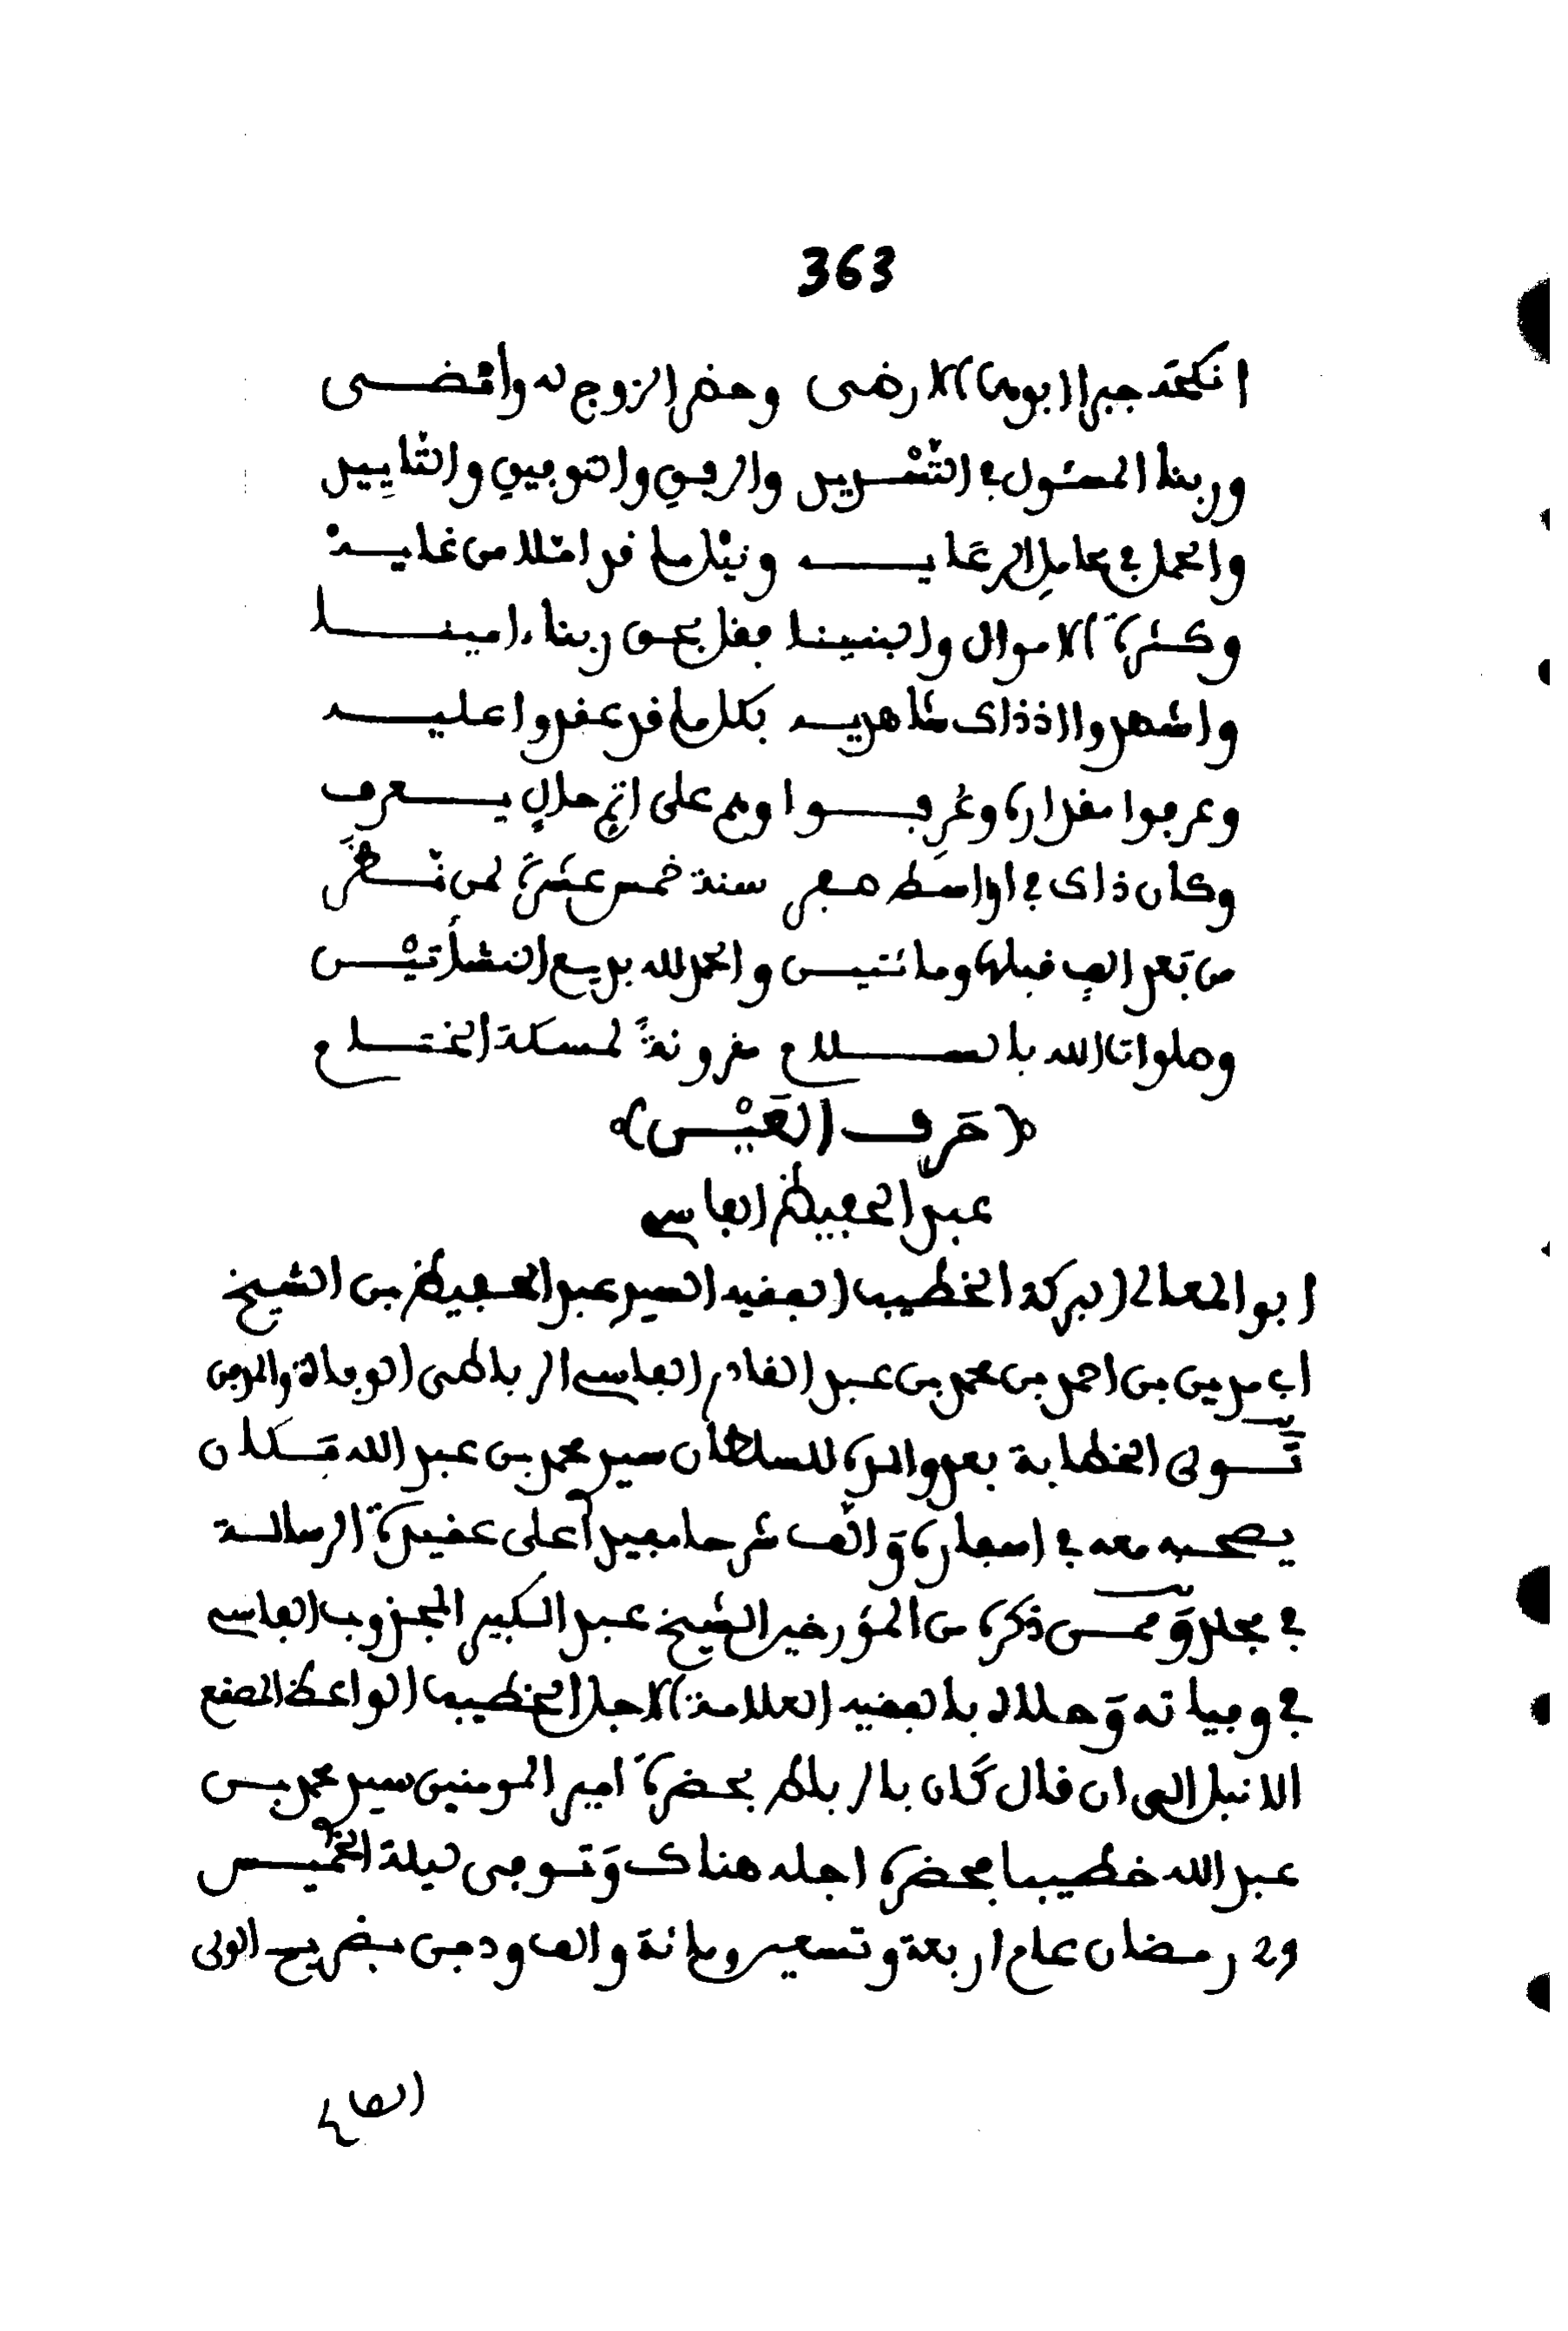 363
انكحه جبرا ابوها الارضى وحضر الزوج له وامضـى
وربنا المسئول في التسـديد والرفق والتوفيق والتاييد
والحمل في محامل الرعايـه ونيل ما قد املا من غايـه
وكثرة الاموال والبنينا بفضل بحق ربنا ءامينـا
واشهدوا اذ ذاك شاهديـه بكل ما قد عقدوا عليـه
وعرفوا مقداره وعرفـوا وهم على اتم حال يـعرف
وكان ذاك في اواسط صفر سنة خمس عشرة لمن نـظر
من بعد الف قبلها ومائتيـن والحمد لله بديع النشأتيـن
وصلوات الله بالسـلام مقرونة لمسكة الختـام
(حرف العيـن)
عبد الحفيظ الفاسي
ابو المعالي البركة الخطيب الفقيه السيد عبد الحفيظ بن الشيخ
ابي مدين بن احمد بن محمد بن عبد القادر الفاسي الرباطي الوفاة والمدفن
تـولى الخطابة بعد والده للسلطان سيد محمد بن عبد الله فـكان
يصحبه معه في اسفاره والف شرحا مفيدا على عقيدة الرسالة
في مجلد وممـن ذكره من المؤرخين الشيخ عبد الكبير المجذوب الفاسي
في وفياته وحلاه بالفقيه العلامة الاجل الخطيب الواعظ المصقع
الانبل الى ان قال كان بالرباط بحضرة امير المومنين سيد محمد بـن
عبد الله خطيبا فحضره اجله هناك وتـوفى ليلة الخميـس
29 رمضان عام اربعة وتسعين ومائة والف ودفن بـضريح الولى